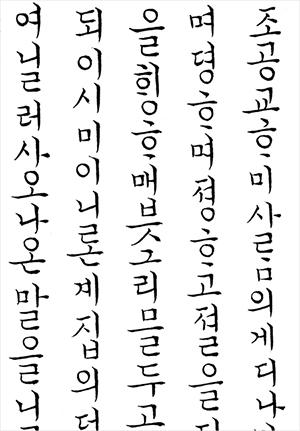 조공교ᄒᆞ미사ᄅᆞᆷ의게디나
며뎡ᄒᆞ며졍ᄒᆞ고졀을
을ᄒᆡᆼᄒᆞ매븟그리믈두고
되이시미이니론계집의
여닐러사오나온말을니